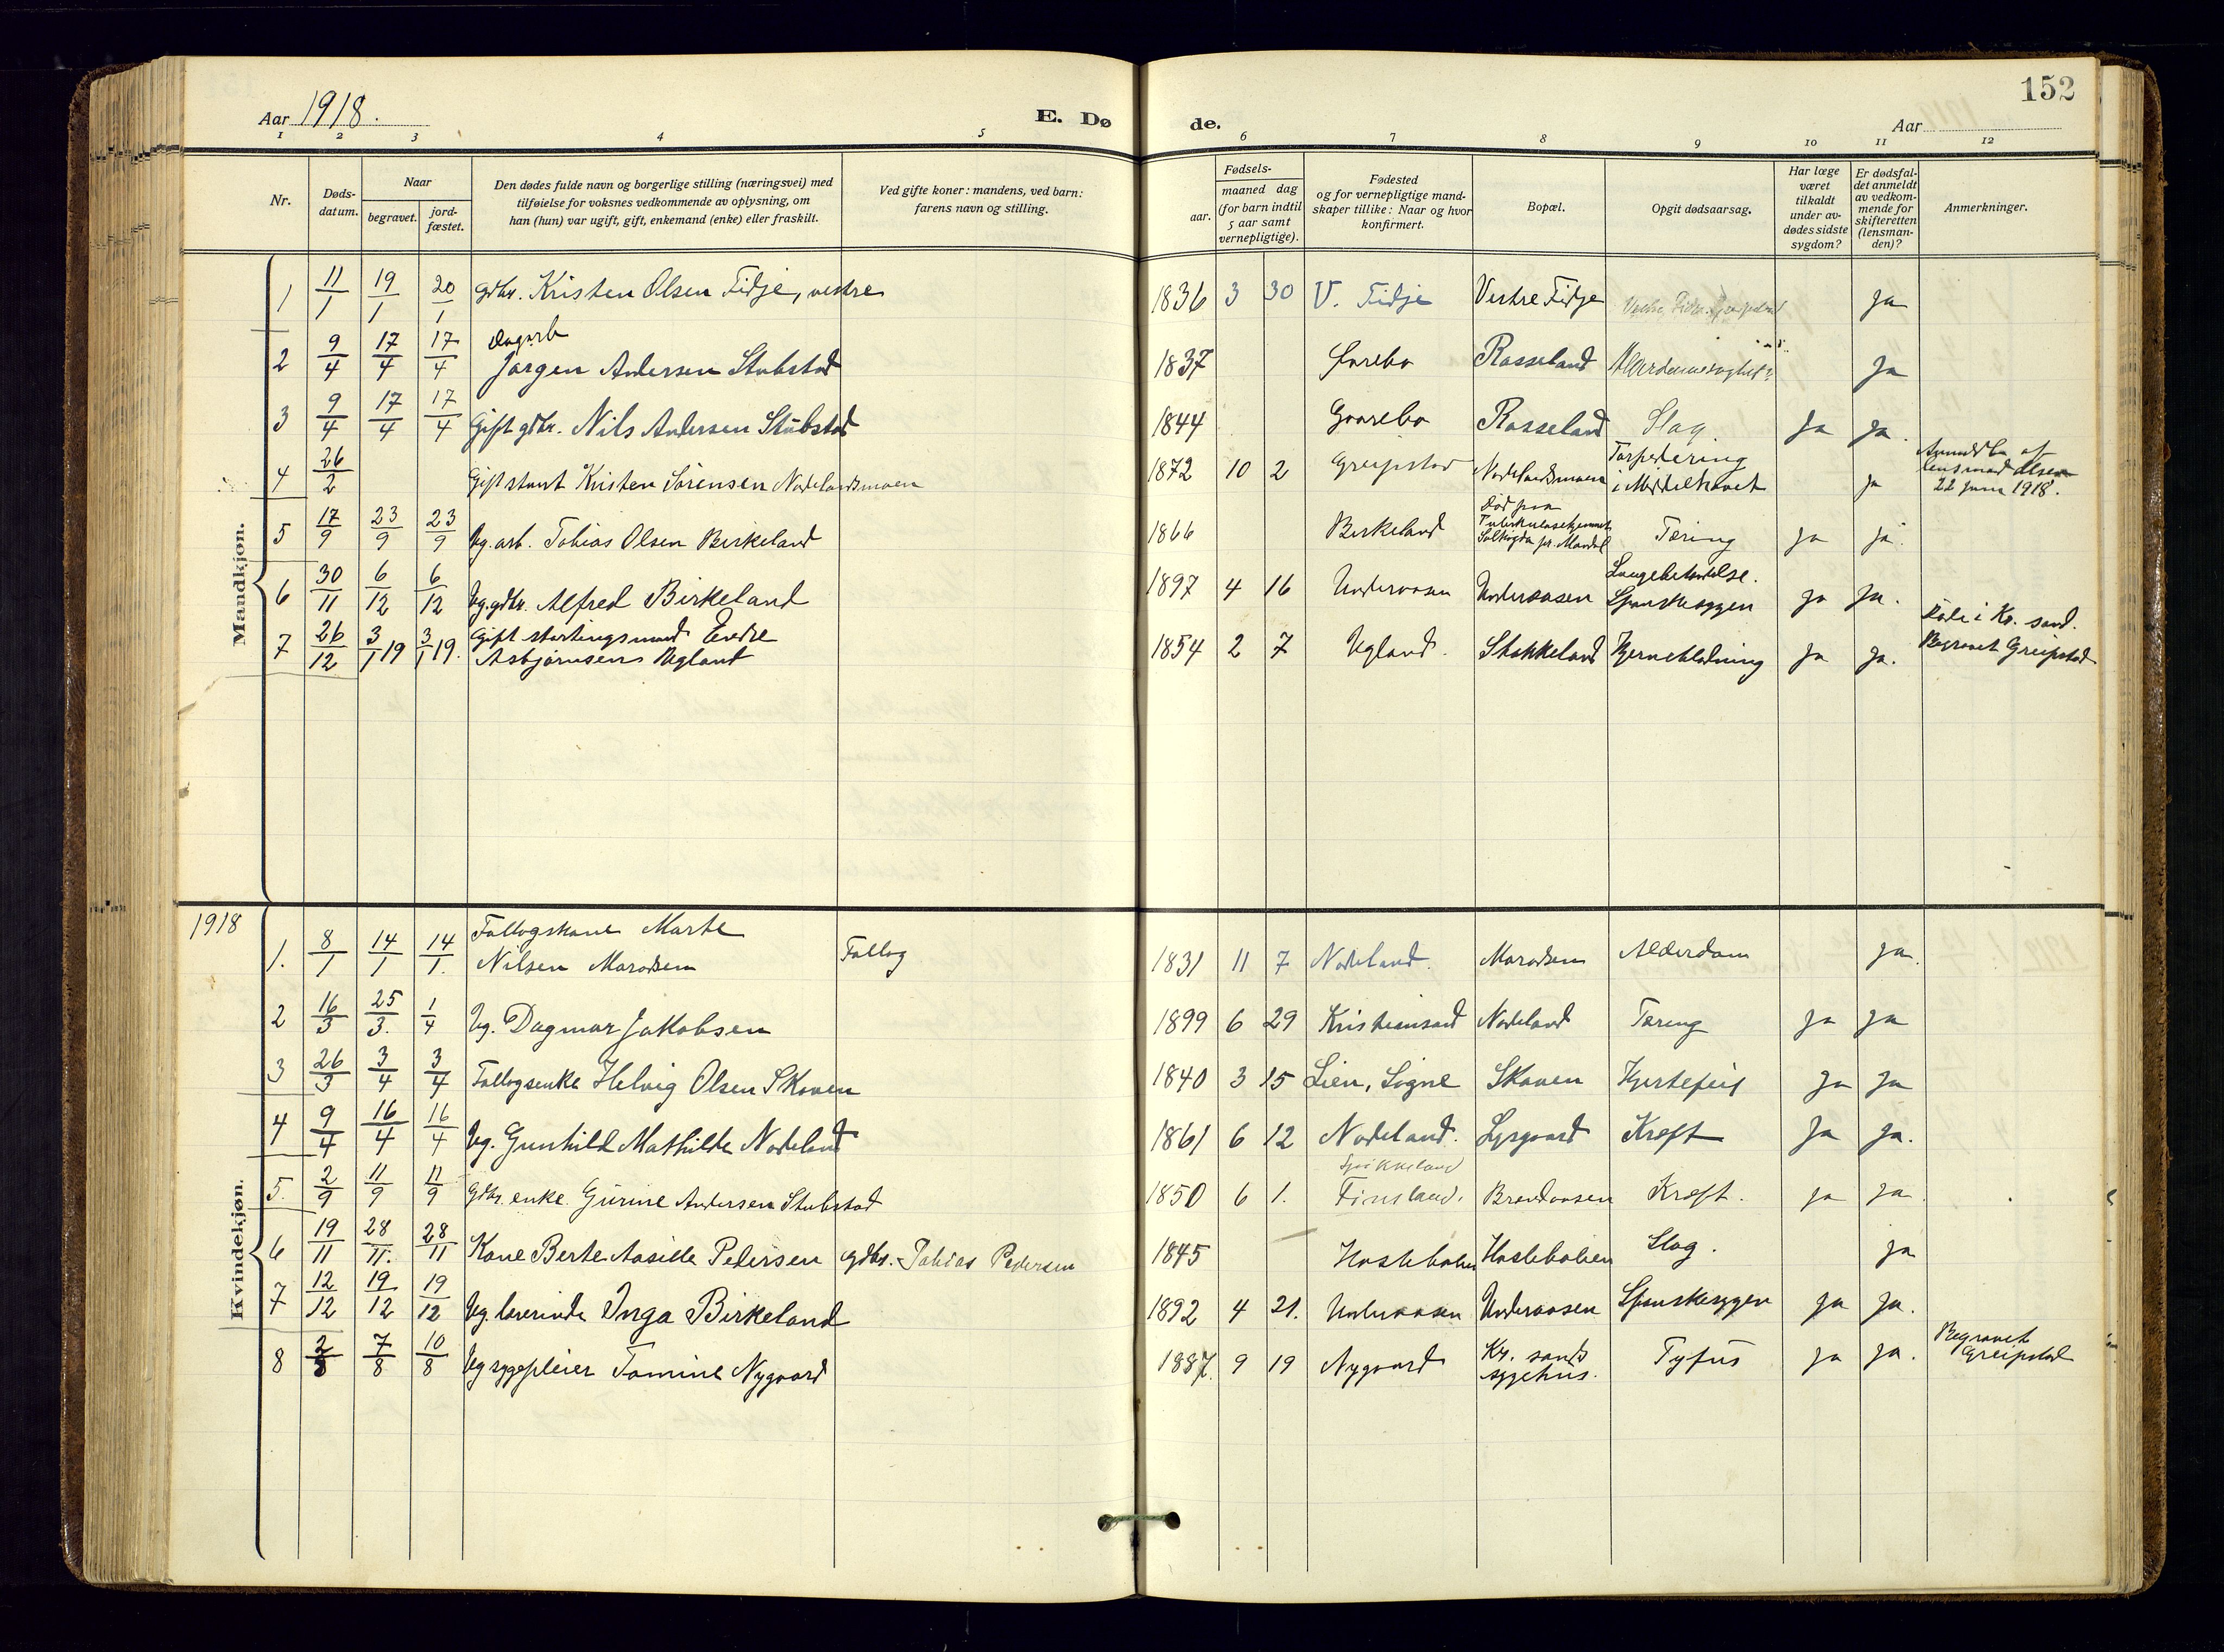 152
Aar 1918.
E. Døde.
Aar
1 2 3 4 5 6 7 8 9 10 11 12
Nr.
Døds-
datum.
Naar
begravet.
jord-
fæstet.
Den dødes fulde navn og borgerlige stilling (næringsvei) med
tilføielse for voksnes vedkommende av oplysning, om
han (hun) var ugift, gift, enkemand (enke) eller fraskilt.
Ved gifte koner: mandens, ved barn:
farens navn og stilling.
Fødsels-
aar.
maaned dag
(for barn indtil
5 aar samt
vernepligtige).
Fødested
og for vernepligtige mand-
skaper tillike: Naar og hvor
konfirmert.
Bopæl.
Opgit dødsaarsag.
Har læge
været
tilkaldt
under av-
dødes sidste
sygdom?
Er dødsfal-
det anmeldt
av vedkom-
mende for
skifteretten
(lensman-
den)?
Anmerkninger.
Mandkjøn.
1 11/1 19/1 20/1 gdbr. Kristen Olsen Fidje, vestre 1836 3 30 V. Fidje Vestre Fidje Ja
2 9/4 17/4 17/4 Dagarb
Jørgen Andersen Stubstad 1837 Rosseland Ja
3 9/4 17/4 17/4 Gift gdbr. Nils Andersen Stubstad 1844 Gaarebo Rosseland Slag. Ja Ja.
4 26/2 Gift stuert Kristen Sørensen Nodelandsmoen 1872 10 2 Greipstad Nodelandsmoen Torpedering
i Middelhavet ja Anmeldt af
lensmand Olsen
22 juni 1918.
5 17/9 23/9 23/9 Ug. arb. Tobias Olsen Birkeland 1866 Birkeland Død paa
Tuberkulosehjemmet
Solhøgda pr. Mandal Tæring ja ja.
6 30/11 6/12 6/12 Ug. gdbr. Alfred Birkeland 1897 4 16 Underaasen Underaasen Lungebetændelse.
Spanskesygen ja Ja.
7 26/12 3/1 19 3/1 19. Gift stortingsmand Endre
Asbjørnsens Vegland 1854 2 7 Vegland. Stokkeland Hjerneblødning ja ja. Døde i Kr. sand.
Begravet Greipstad
1918
Kvindekjøn.
1. 8/1 14/1 14/1. Follogskone Marte
Nilsen Marodsen Follog 1831 11 7 Nodeland. Marodsen Alderdom ja.
2 16/3 25/3. 1/4 Ug. Dagmar Jakobsen 1899 6 29 Kristiansand Nodeland Tæring ja ja
3 26/3 3/4 3/4 Follogsenke Helvig Olsen Skoven 1840 3 15 Lien, Søgne Skoven Hjertefeil Ja Ja
4 9/4 16/4 16/4 Ug. Gunhild Mathilde Nodeland 1861 6 12 Nodeland. Lysgaard Kræft Ja Ja.
5. 2/9 11/9 11/9 Gdbr. enke Gurine Andersen Stubstad 1850 6 1. Finsland. Brandaasen Kræft. ja ja
6 19/11 28/11. 28/11 Kone Berte Aasille Pedersen gdbr. Tobias Pedersen 1845 Haslebolien Haslebolien Slag. ja
7 12/12 19/12 19/12 Ug. lærerinde Inga Birkeland 1892 4 21. Underaasen Underaasen Spanskesygen ja ja.
8 2/8 7/8 10/8 Ug sygepleier Tomine Nygaard 1887. 9 19 Nygaard Kr. sands
sygehus. Tyfus ja ja. Begravet
Greipstad